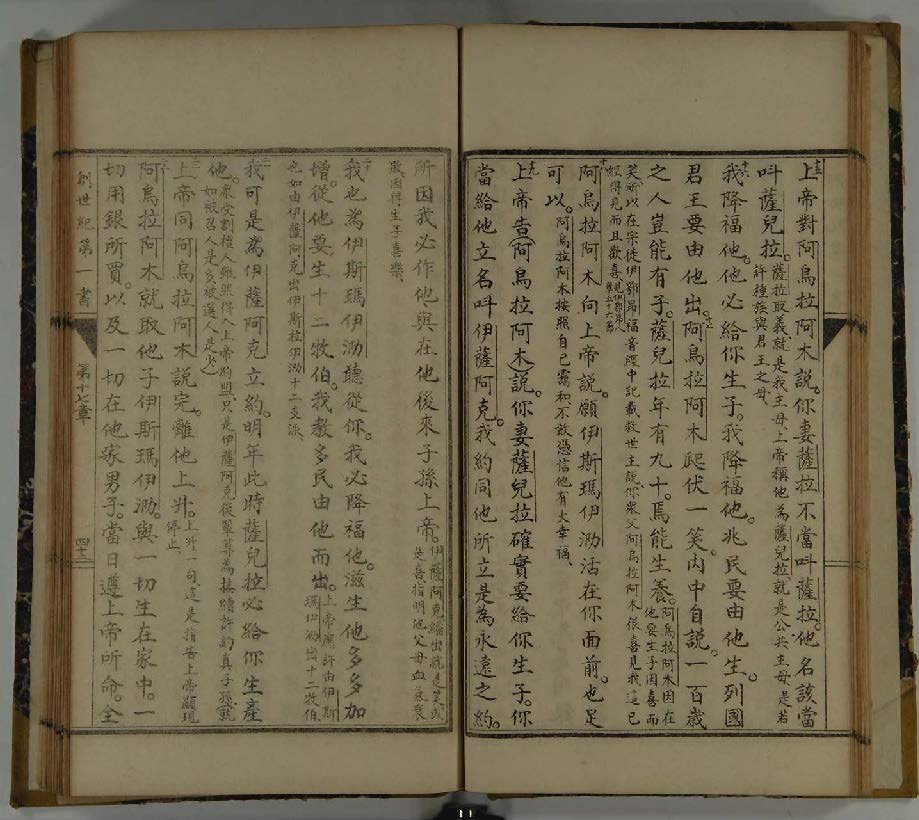 上帝對阿烏拉阿木説。你妻薩拉不當叫薩拉。他名該當
叫薩兒拉。薩拉取義就是我主母上帝稱他為薩兒拉就是公共主母是若許種族與君王之母、
我降福他。他必給你生子。我降福他。兆民要由他生。列國
君王要由他出。阿烏拉阿木爬伏一笑。内中自説。一百歲
之人豈能有子。薩兒拉年有九十。焉能生養。阿烏拉阿木因在他要生子因喜而
笑所以在宗徒伊鄂昂福音經中記載救世主説你衆父阿烏拉阿木很喜見我這已
經得見而且歡喜
阿烏拉阿木向上帝説。願伊斯瑪伊泐活在你面前。也足
可以。阿烏拉阿木按照自己靄和不敢憑信他有大幸福、
上帝告(阿烏拉阿木)説。你妻薩兒拉確實要給你生子。你
當給他立名叫伊薩阿克。我約同他所立是為永遠之約。
所因我必作他與在他後來子孫上帝。伊薩阿克繙出就是笑或是喜指明他父母血氣衰
敗因得生子喜樂、
我也為伊斯瑪伊泐聽從你。我必降福他。滋生他多多加
增。從他要生十二牧伯。我教多民由他而出。上帝應許由伊斯瑪伊泐出十二牧伯
也如由伊薩阿克出伊斯拉伊泐十二支派、
我可是為伊薩阿克立約。明年此時薩兒拉必給你生產
他。衆受割禮人雖然得入上帝約盟只是伊薩阿克後輩算為接續許約真子孫就如被召人是多被選人是少
上帝同阿烏拉阿木説完。離他上升。上升一句這是指告上帝顯現停止
阿烏拉阿木就取他子伊斯瑪伊泐。與一切生在家中。一
切用銀所買。以及一切在他家男子。當日遵上帝所命。全
創世紀第一書
第十七章
四十三